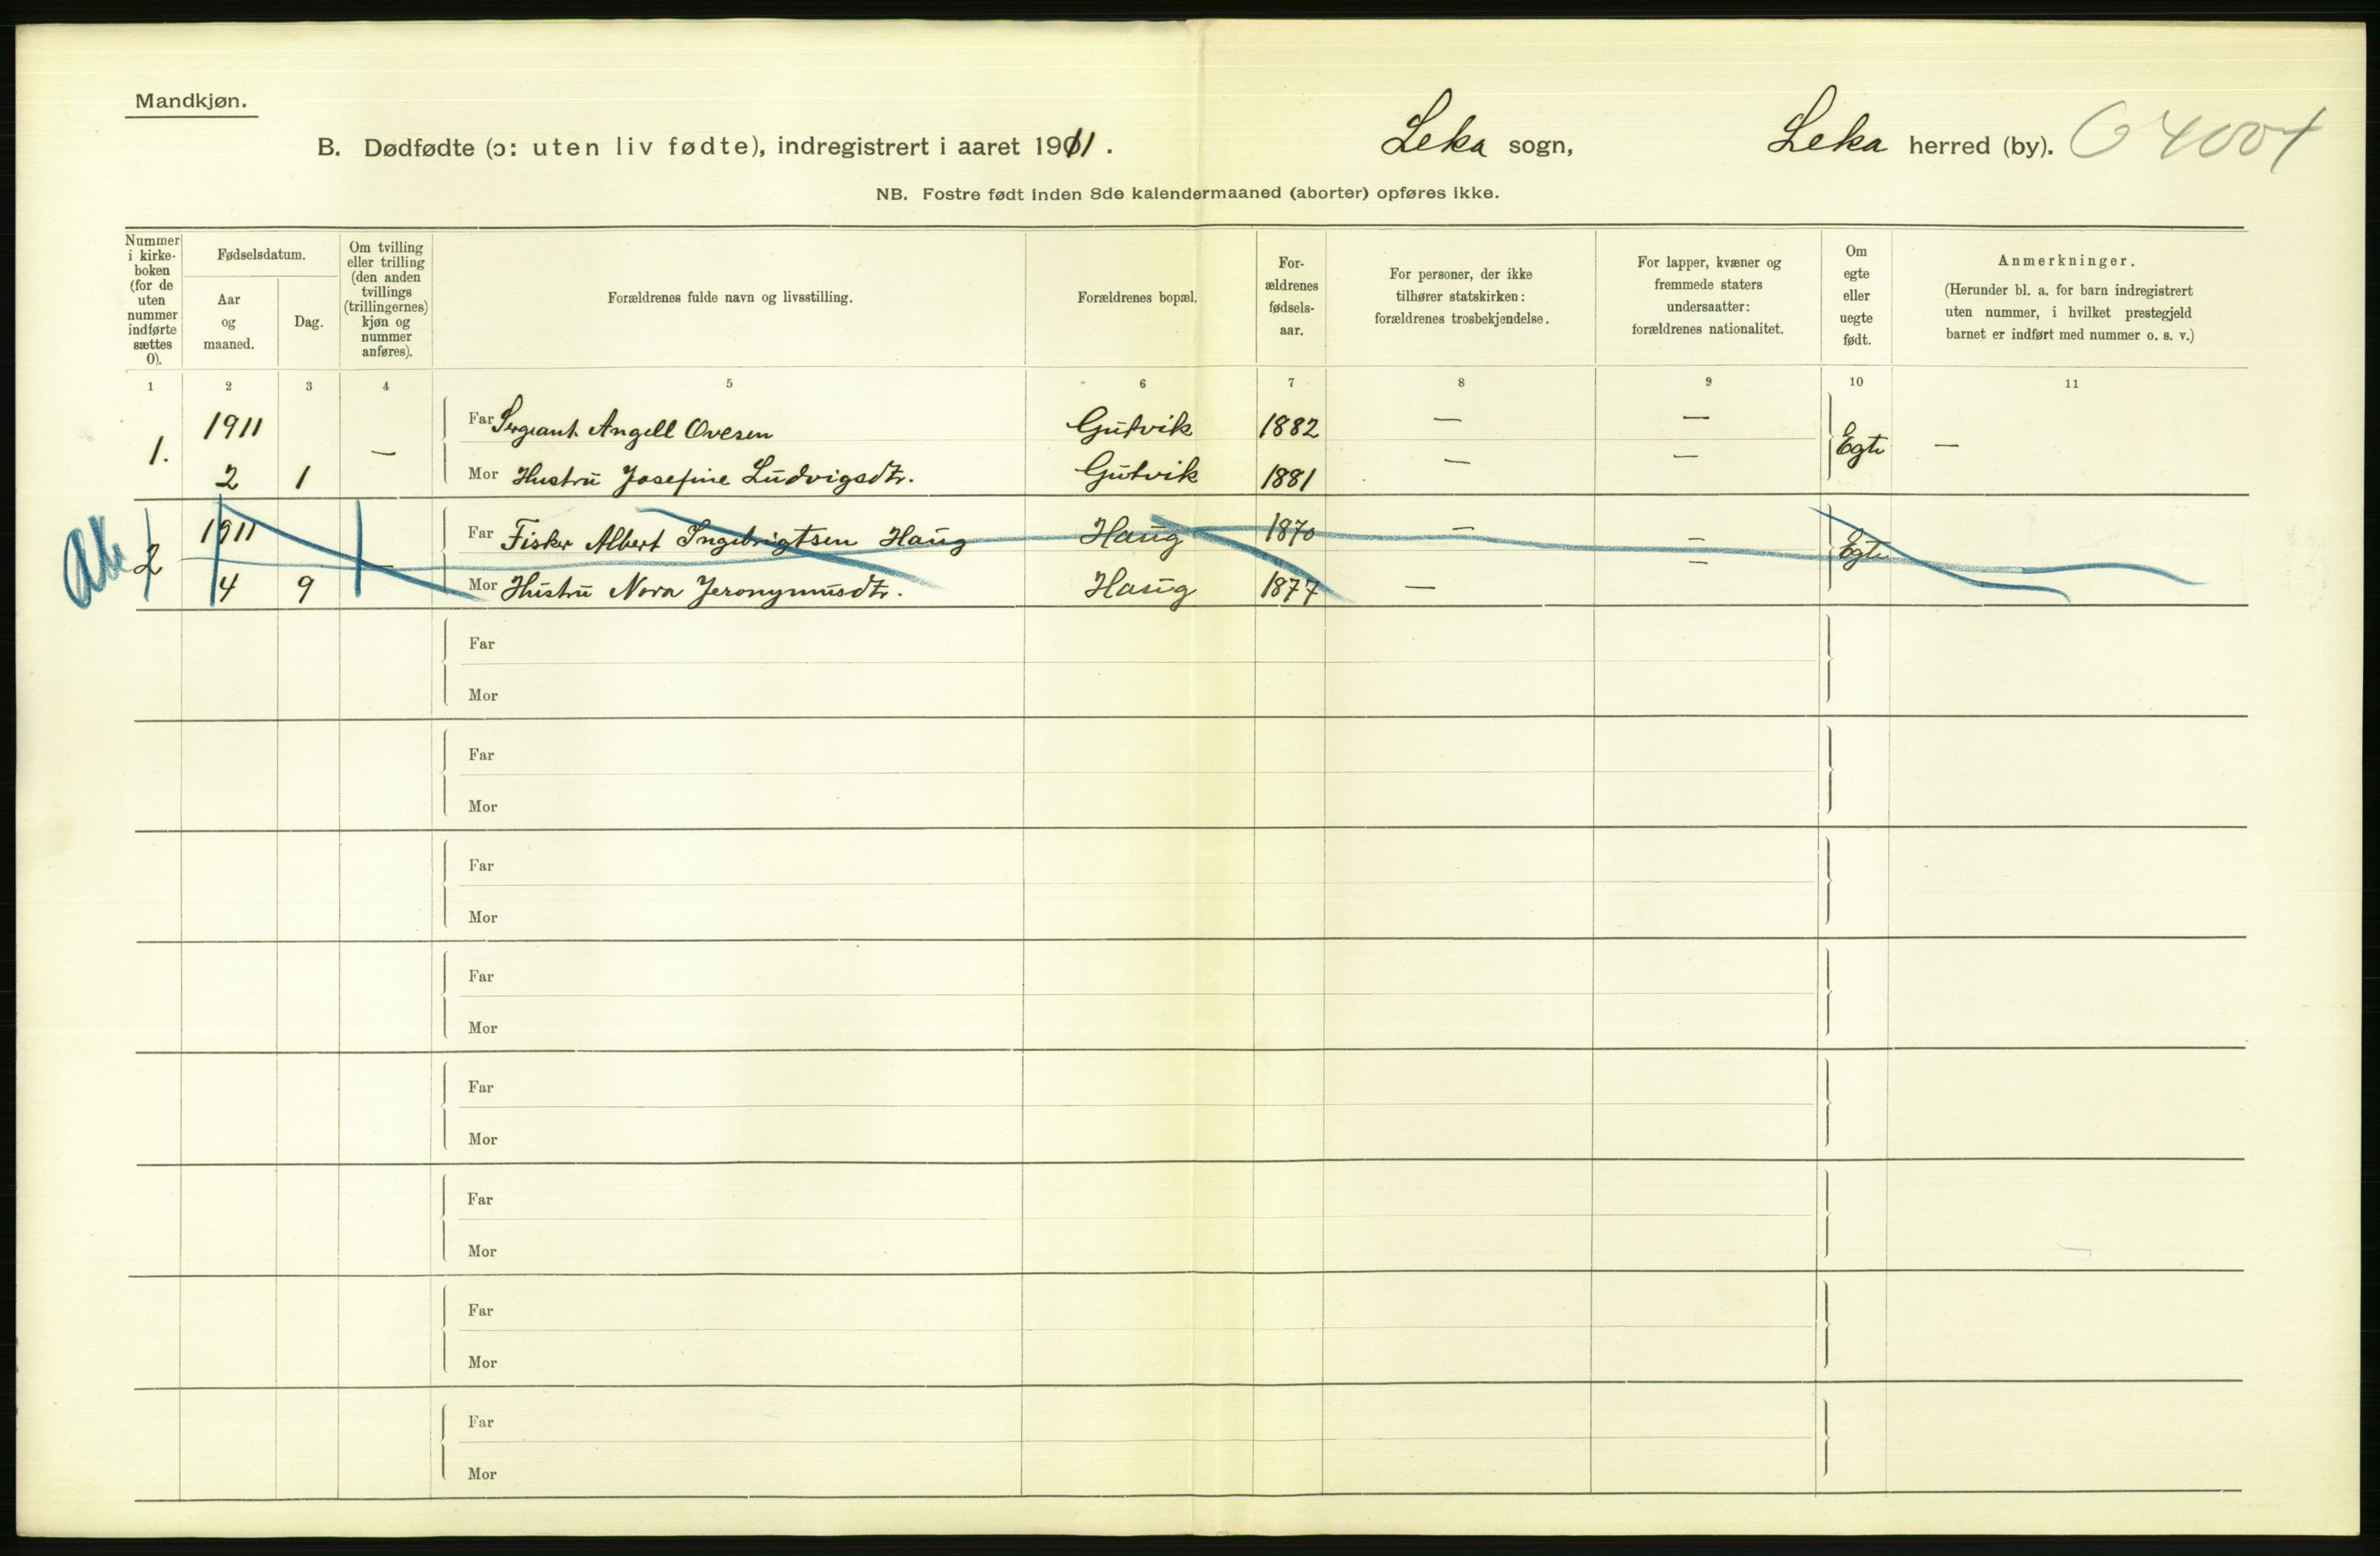 Mandkjøn.
B. Dødfødte (ɔ: uten liv fødte), indregistrert i aaret 1911. Leka sogn, Leka herred (by).
NB. Fostre født inden 8de kalendermaaned (aborter) opføres ikke.
Nummer
i kirke-
boken
(for de
uten
nummer
indførte
sættes
0).
Fødselsdatum.
Aar
og
maaned.
Dag.
Om tvilling
eller trilling
(den anden
tvillings
(trillingernes)
kjøn og
nummer
anføres).
Forældrenes fulde navn og livsstilling.
Forældrenes bopæl.
For-
ældrenes
fødsels-
aar.
For personer, der ikke
tilhører statskirken:
forældrenes trosbekjendelse.
For lapper, kvæner og
fremmede staters
undersaatter:
forældrenes nationalitet.
Om
egte
eller
uegte
født.
Anmerkninger.
(Herunder bl. a. for barn indregistrert
uten nummer, i hvilket prestegjeld
barnet er indført med nummer o. s. v.)
1 2 3 4 5 6 7 8 9 10 11
1. 1911 — Far Sergeant Angell Ovesen Gutvik 1882 — — Egte —
2 1 Mor Hustru Josefine Ludvigsdtr. Gutvik 1881 — —
2 1911 — Far Fisker Albert Ingebrigtsen Haug Haug 1870 — — Egte
4 9 Mor Hustru Nora Jeronymusdtr. Haug 1877 — —
Far
Mor
Far
Mor
Far
Mor
Far
Mor
Far
Mor
Far
Mor
Far
Mor
Far
Mor